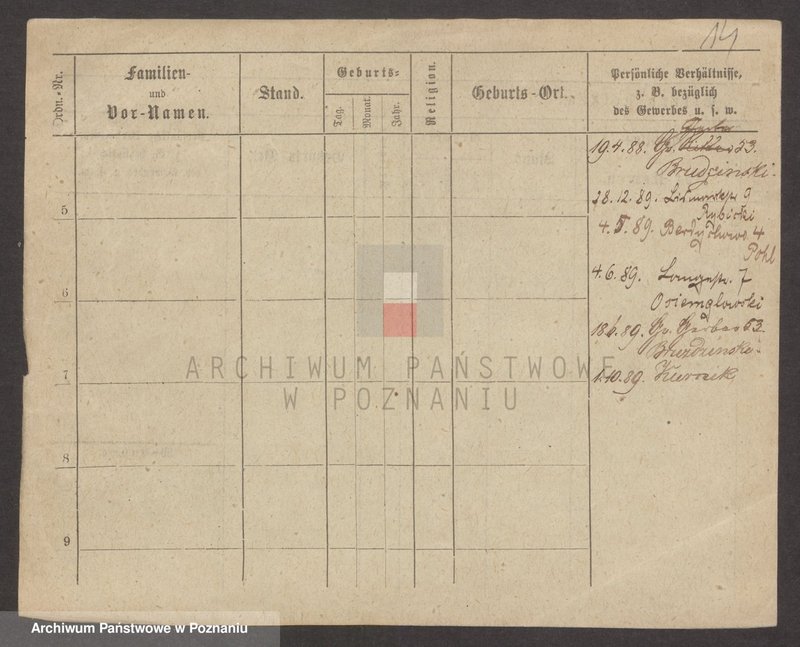 14
Ordn.-Nr.
Familien-
und
Vor-Namen.
Stand.
Geburts-
Tag.
Monat.
Jahr.
Religion.
Geburts-Ort.
Persönliche Verhältnisse,
z. B. bezüglich
des Gewerbes u. s. w.
19.4.88. Gr. 53.
Brudzinski.
5
28.12.89. 9
Rybicki
4. 5. 89. 4
Pohl
6
4.6.89. Langestr. 7
Osiemglowski
89. Gr. Gerber 53.
Brudzinski.
7
1.10.89.
8
9
ARCHIWUM PAŃSTWOWE
W POZNANIU
Archiwum Państwowe w Poznaniu